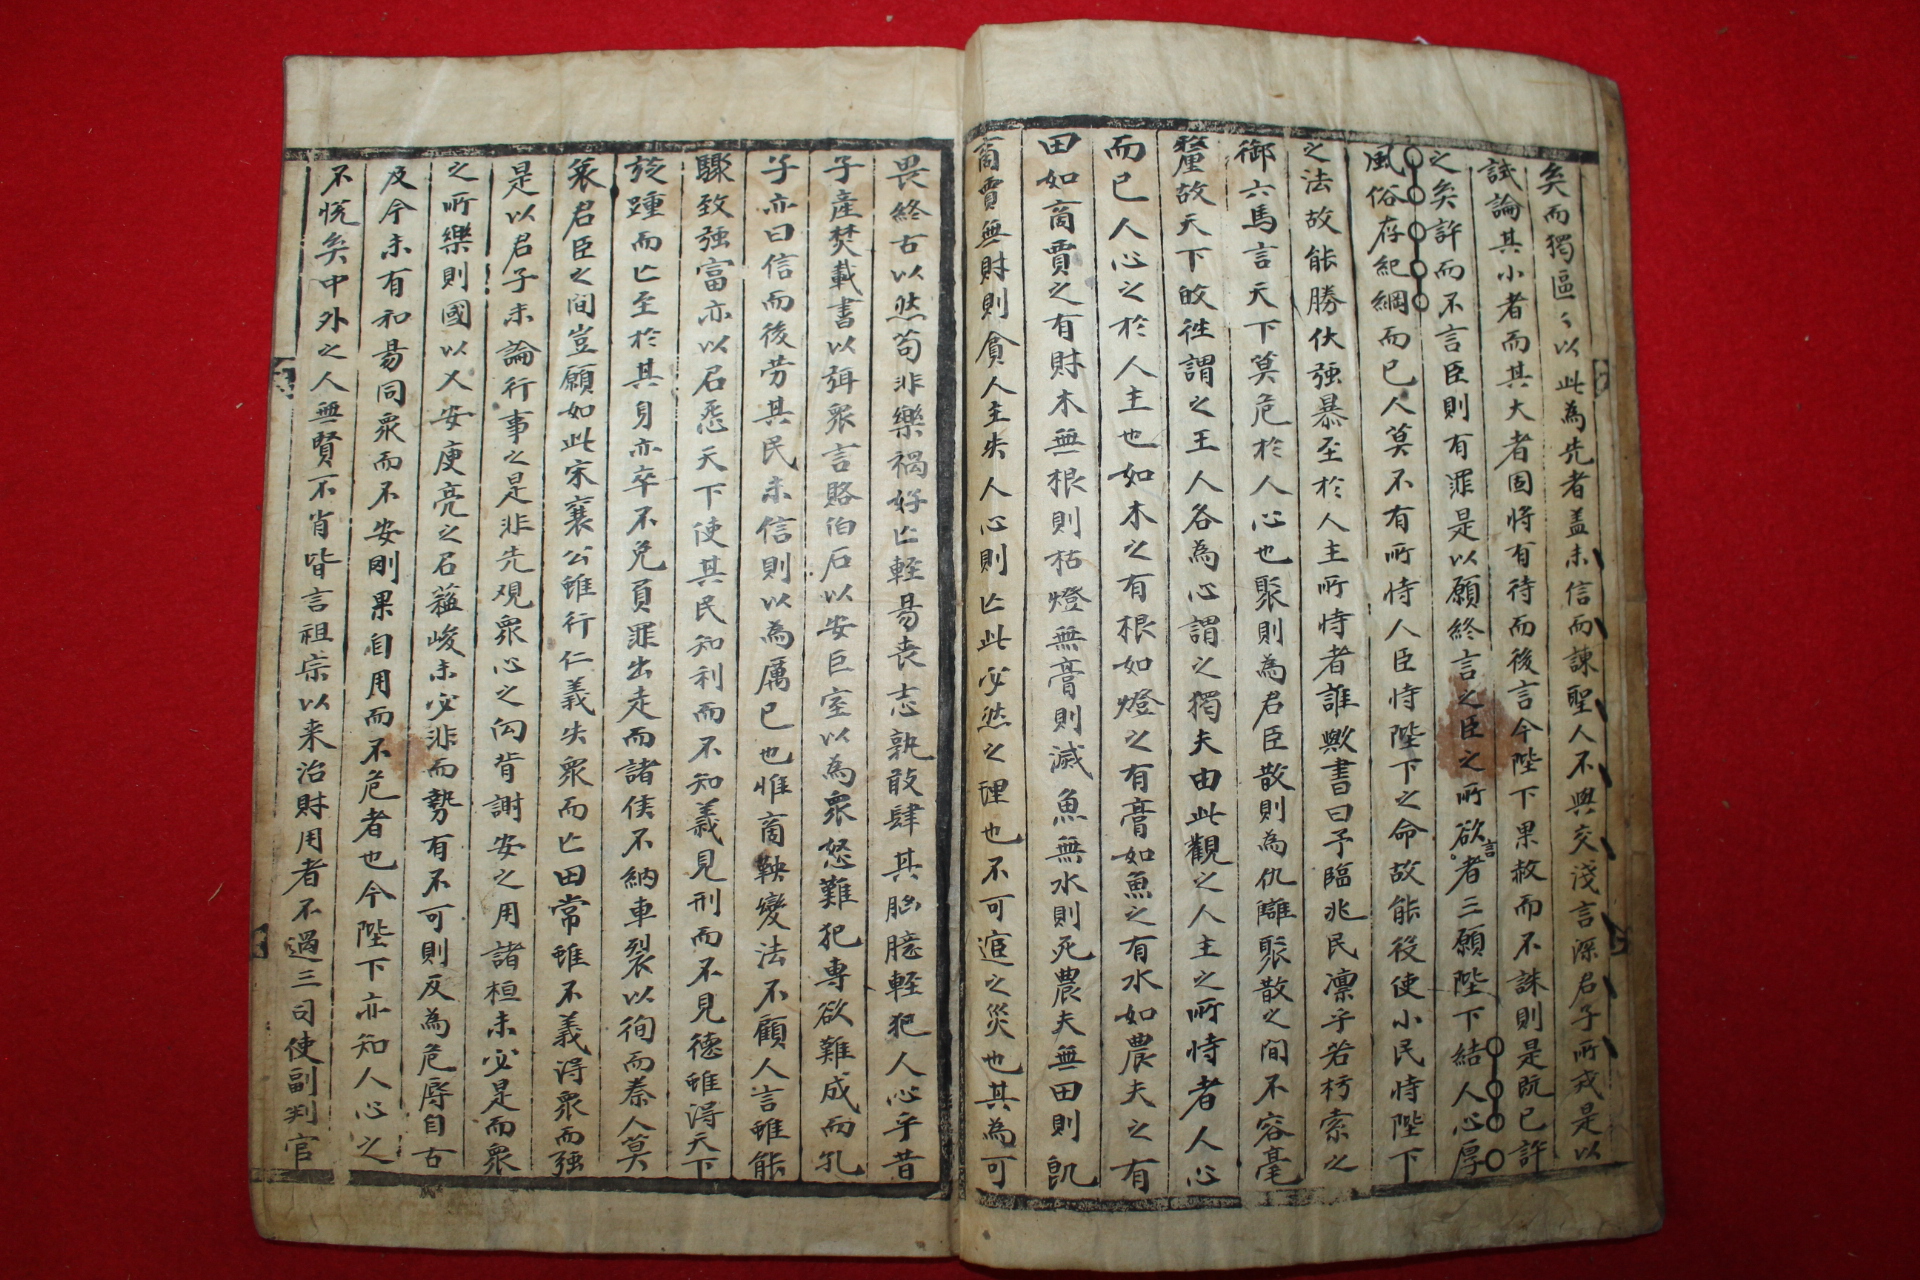 矣而獨區々以此為先者盖未信而諫聖人不與交淺言深君子所戒是以
試論其小者而其大者固將有待而後言今陛下果赦而不誅則是既已許
之矣許而不言臣則有罪是以願終言之臣之所欲言者三願陛下結人心厚
風俗存紀綱而已人莫不有所恃人臣恃陛下之命故能役使小民恃陛下
之法故能勝伏强暴至於人主所恃者誰歟書曰予臨兆民凛乎若朽索之
御六馬言天下莫危於人心也聚則為君臣散則為仇讎聚散之間不容毫
釐故天下攸徃謂之王人各為心謂之獨夫由此觀之人主之所恃者人心
而已人心之於人主也如木之有根如燈之有膏如魚之有水如農夫之有
田如商賈之有財木無根則枯燈無膏則滅魚無水則死農夫無田則飢
商賈無財則貪人主失人心則亡此必然之理也不可逭之災也其為可
畏終古以然苟非樂禍好亡輕昜丧志孰敢肆其胸臆輕犯人心乎昔
子產焚載書以弭衆言賂伯石以安巨室以為衆怒難犯專欲難成而孔
子亦曰信而後劳其民未信則以為厲已也惟商鞅變法不顧人言雖能
驟致强富亦以召恐天下使其民知利而不知義見刑而不見德雖得天下
旋踵而亡至於其身亦卒不免負罪出走而諸侯不納車裂以徇而秦人莫
衰君臣之間豈願如此宋襄公雖行仁義失衆而亡田常雖不義得衆而强
是以君子未論行事之是非先观衆心之向背謝安之用諸桓未必是而衆
之所樂則國以乂安庾亮之召蘓峻未必非而勢有不可則反為危辱自古
及今未有和昜同衆而不安剛果自用而不危者也今陛下亦知人心之
不悅矣中外之人無賢不肖皆言祖宗以来治財用者不過三司使副判官